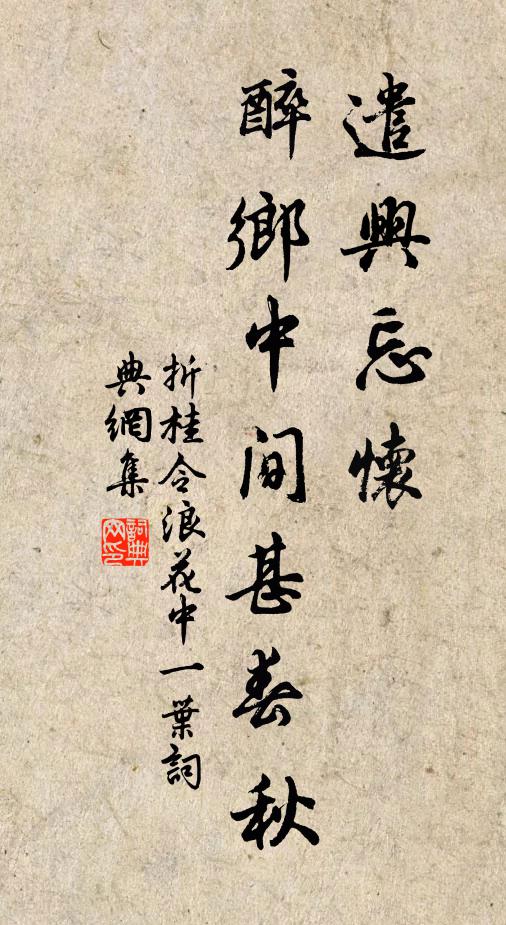 遣興忘懷
醉鄉中間甚春秋
折桂令浪花中一葉詞
典網集
詞典
网印